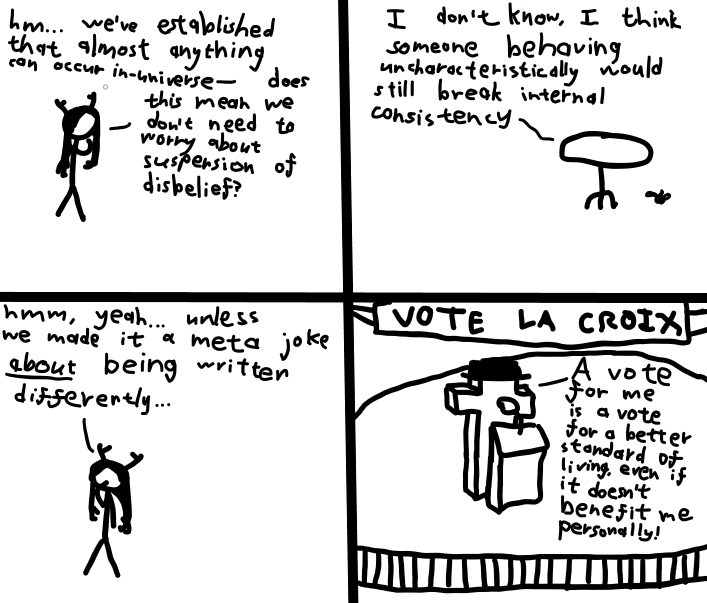 hm... we've established
that almost anything
can occur in-universe— does
this mean we
don't need to
worry about
suspension of
disbelief?
I don't know, I think
someone behaving
uncharacteristically would
still break internal
consistency
hmm, yeah... unless
we made it a meta joke
about being written
differently...
VOTE LA CROIX
A vote
for me
is a vote
for a better
standard of
living, even if
it doesn't
benefit me
personally!